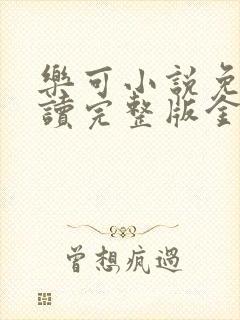 樂可小說免
讀完整版全
曾想疯過